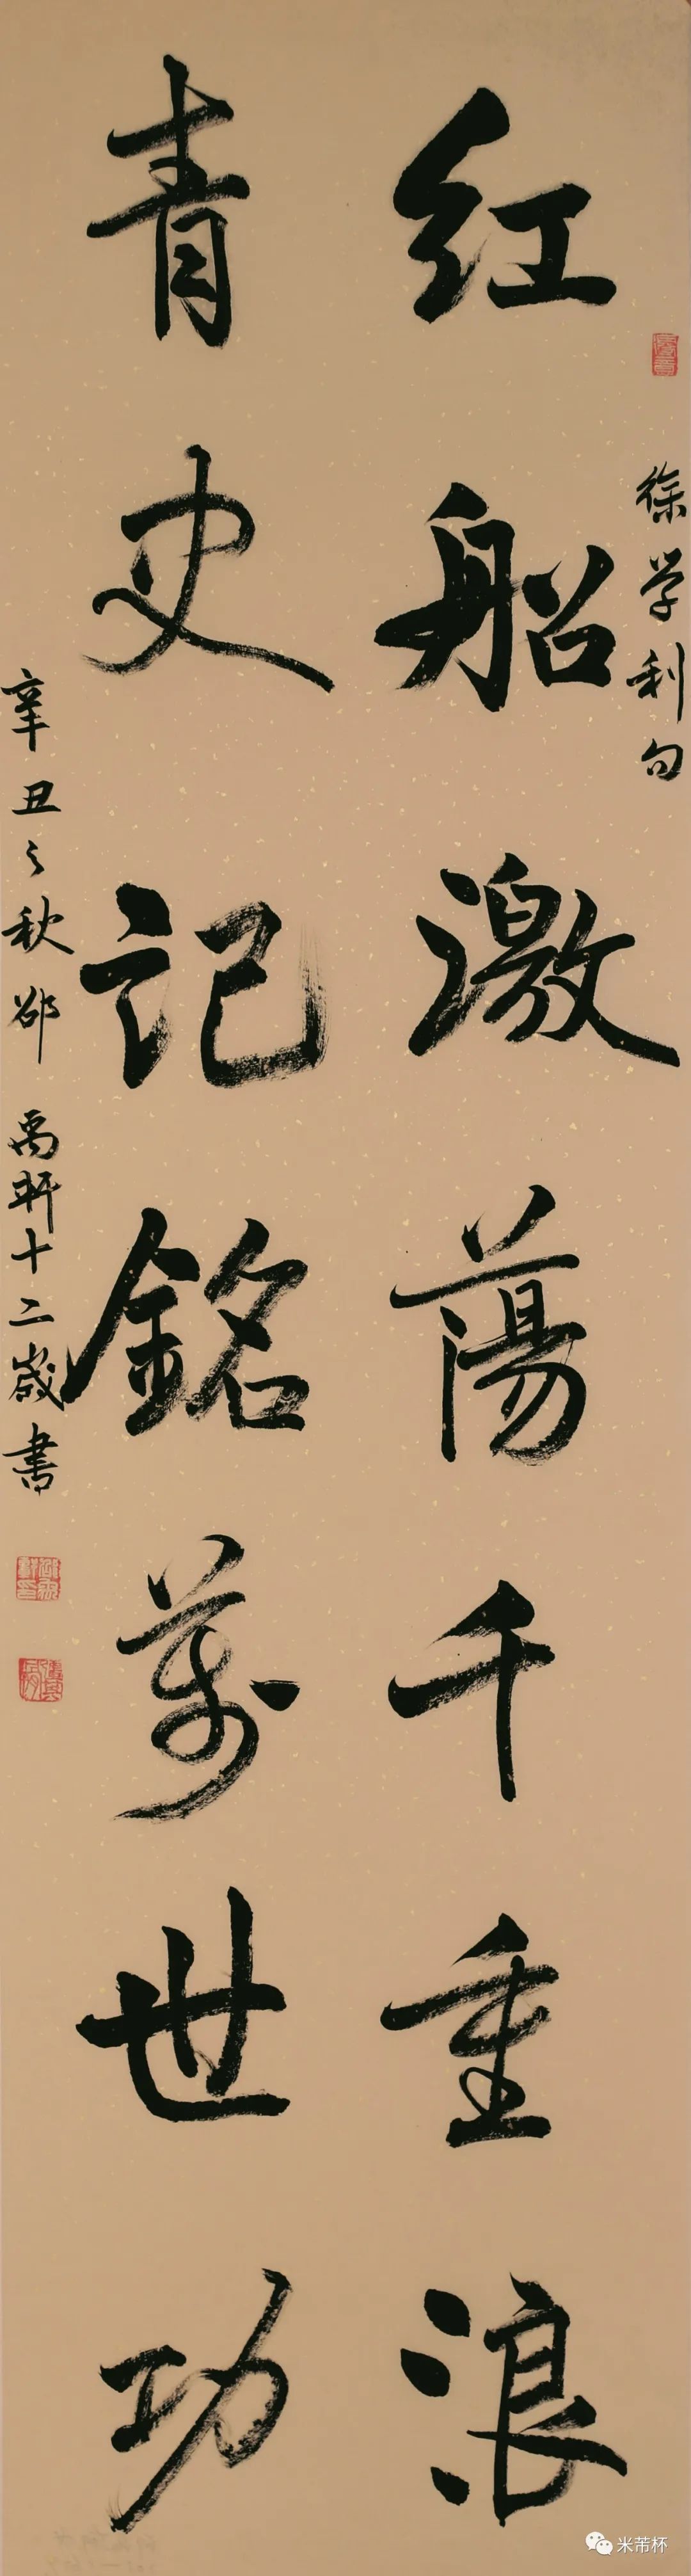 徐学利句
红船激荡千重浪
青史记銘萬世功
辛丑之秋邵禹轩十二歲書
米芾杯